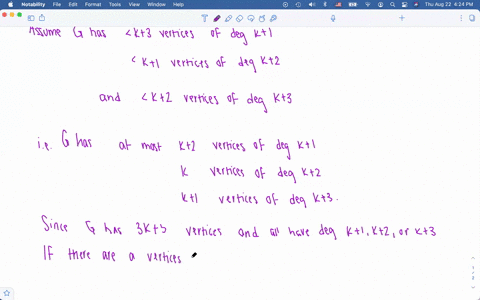 Notability File Edit View Window Help
Thu Aug 22 4:24 PM
Assume G has <k+3 vertices of deg k+1
<k+1 vertices of deg k+2
and <k+2 vertices of deg k+3
i.e. G has at most k+2 vertices of deg k+1
k vertices of deg k+2
k+1 vertices of deg k+3.
Since G has 3k+5 vertices and all have deg k+1, k+2, or k+3
If there are a vertices